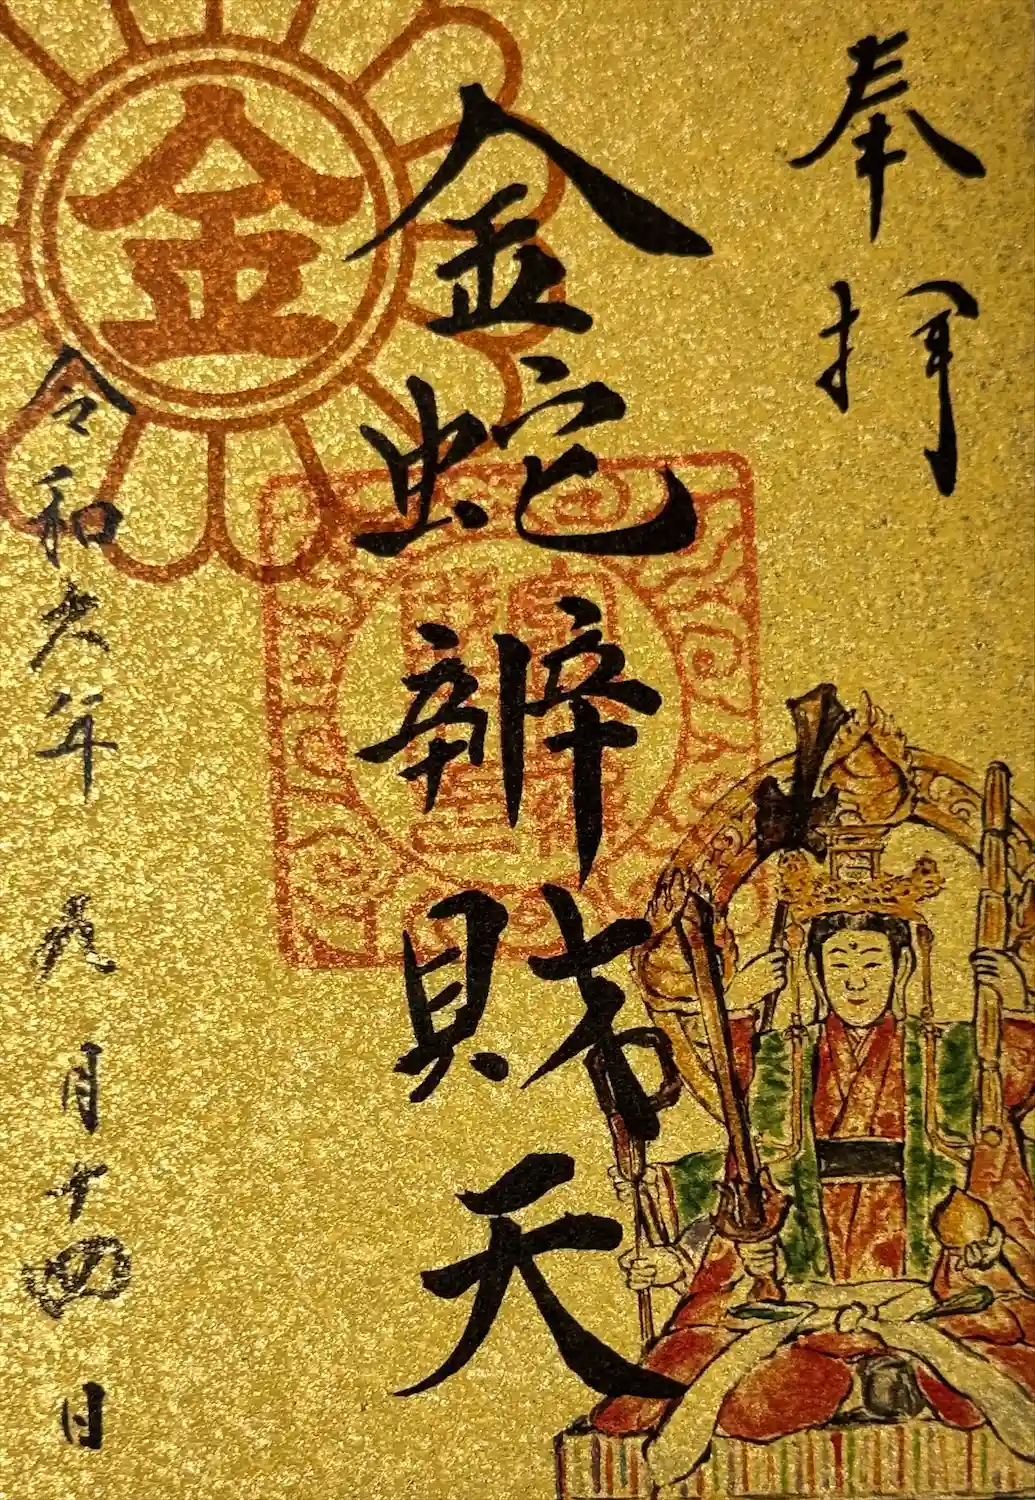 奉拝
金蛇辨財天
令和六年 九月十四日
金